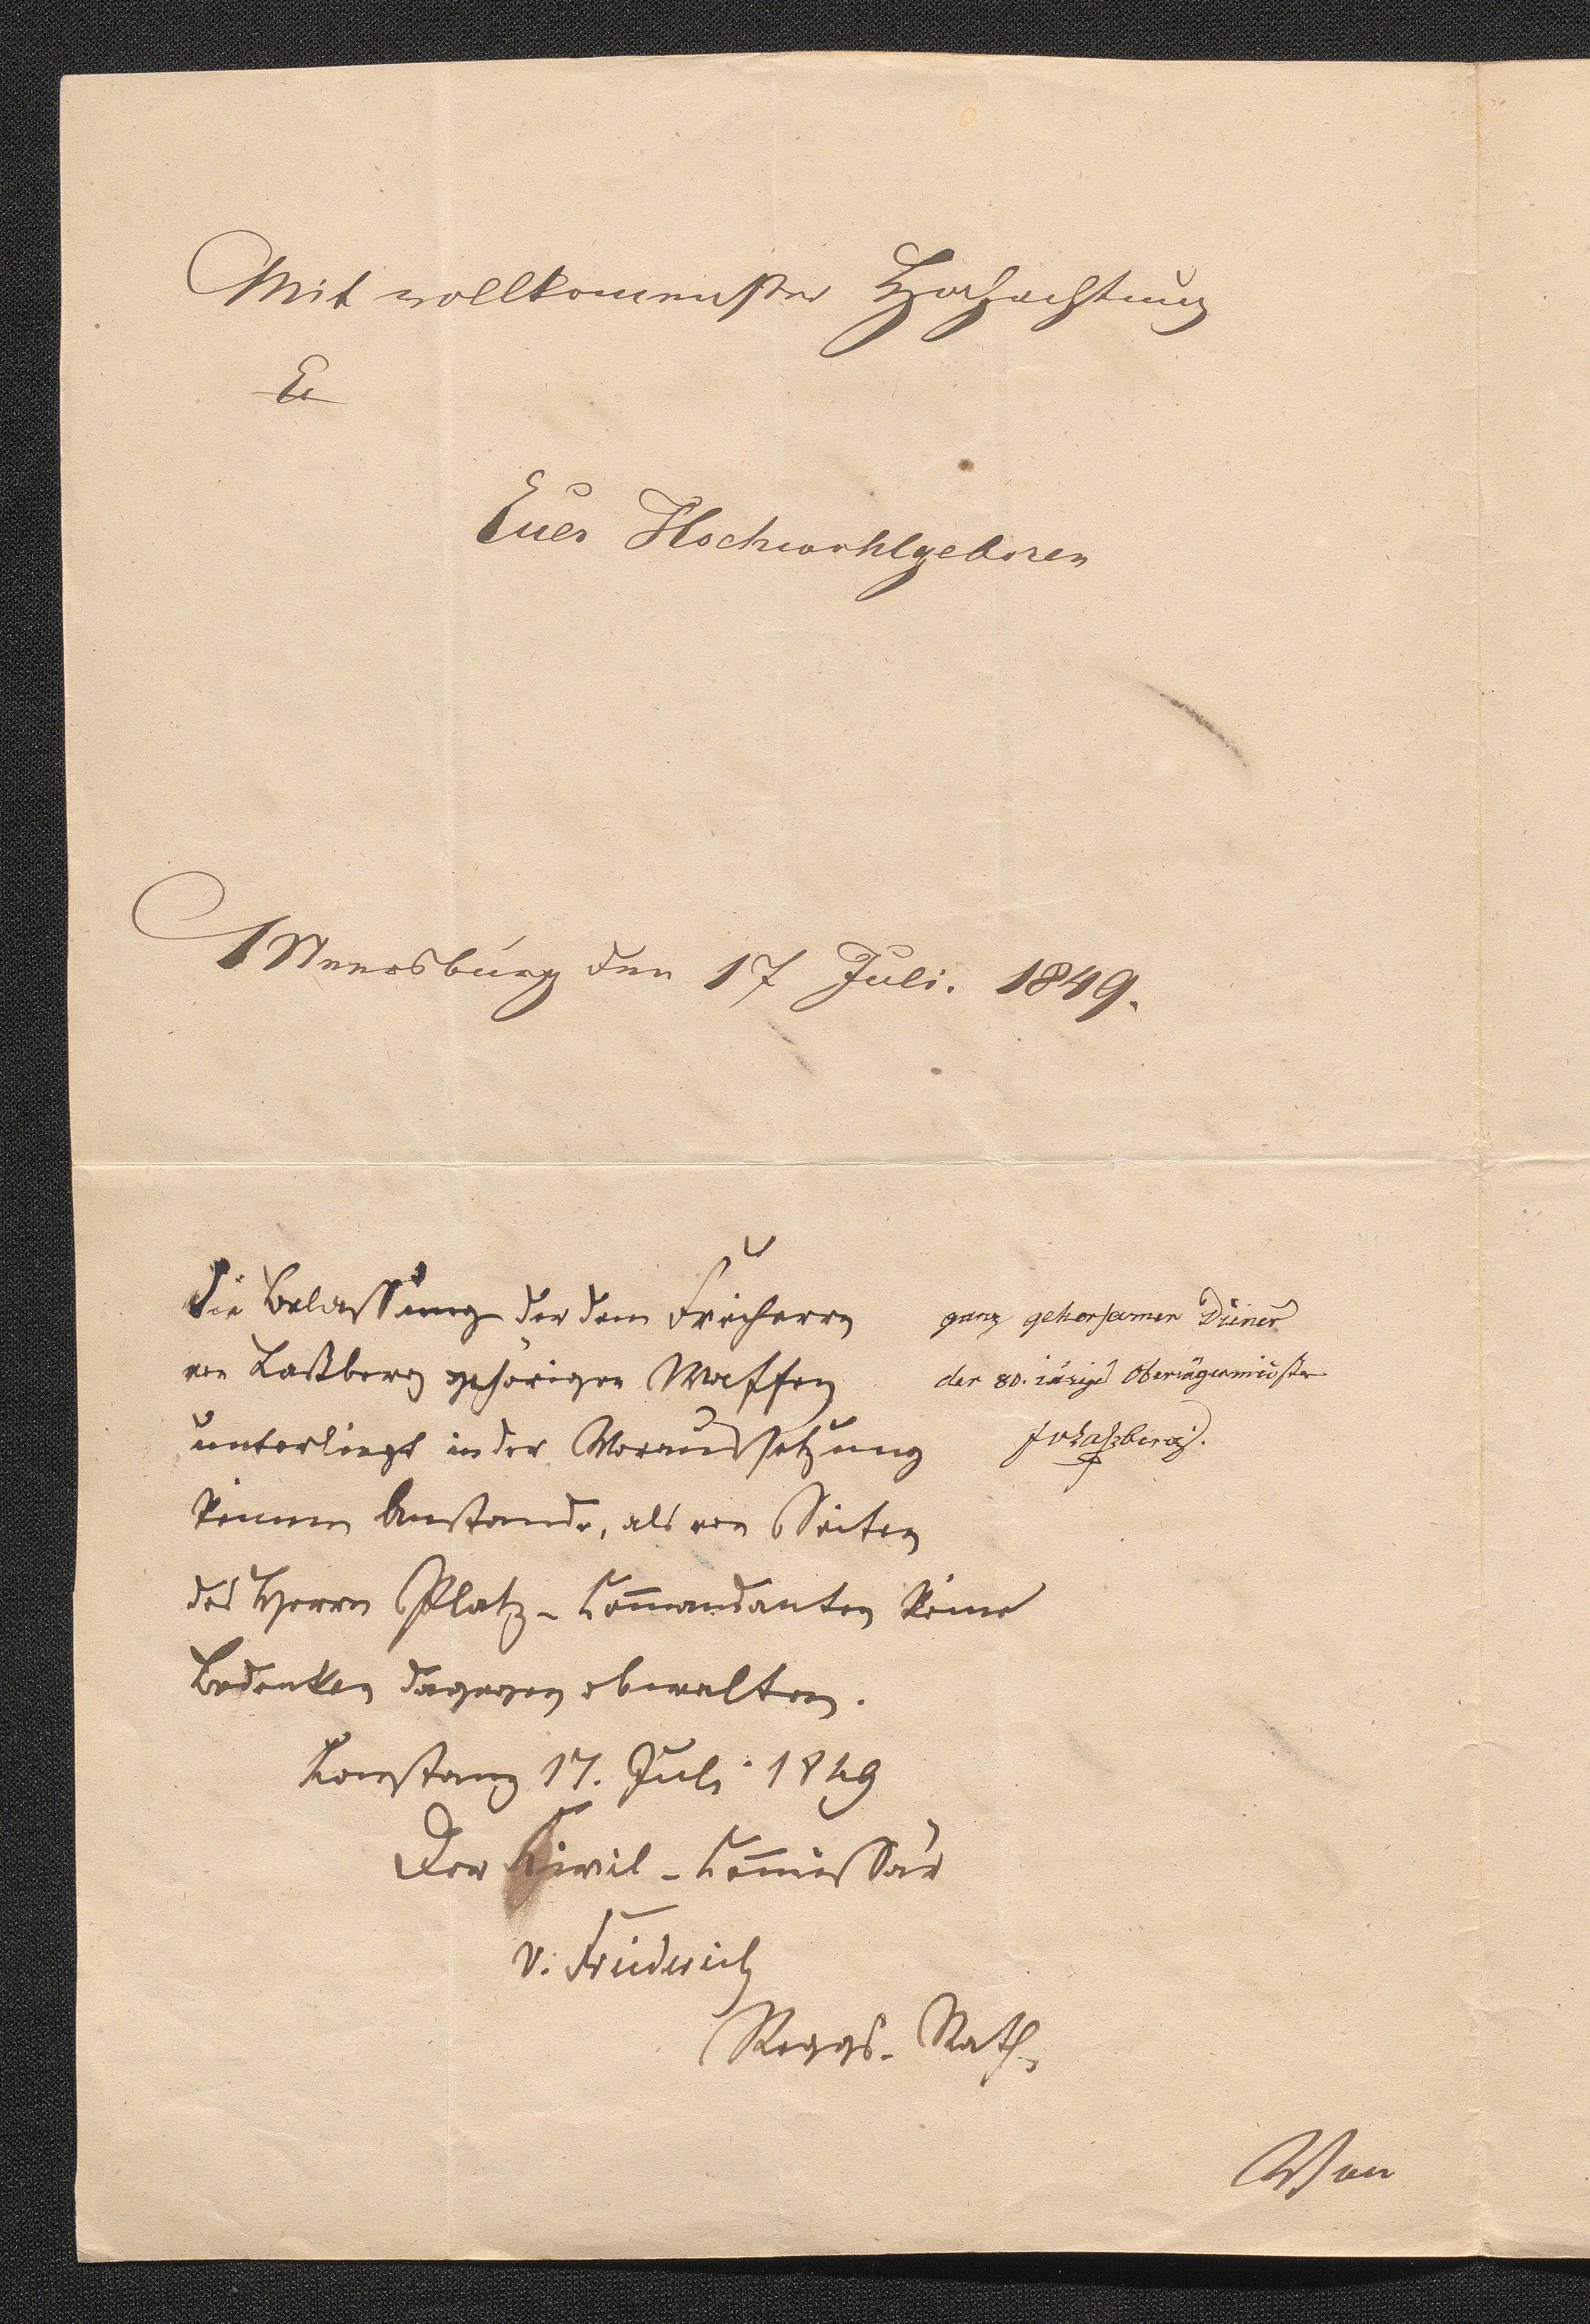 Mit vollkomenster Hochachtung
E
Euer Hochwohlgeboren
Meersburg den 17 Juli. 1849.
ganz gehorsamer Diener
der 80. iärige Oberiägermeister
JvLaßberg.
Die Belassung der dem Freiherrn
von Laßberg gehörigen Waffen
unterliegt in der Voraussetzung
keinem Anstande, als von Seiten
des Herrn Platz-Com̅andanten keine
Bedenken dagegen obwalten.
Konstanz 17. Juli 1849
Der Civil-Com̅issär
v. Friederich
Reggs.-Rath
Von